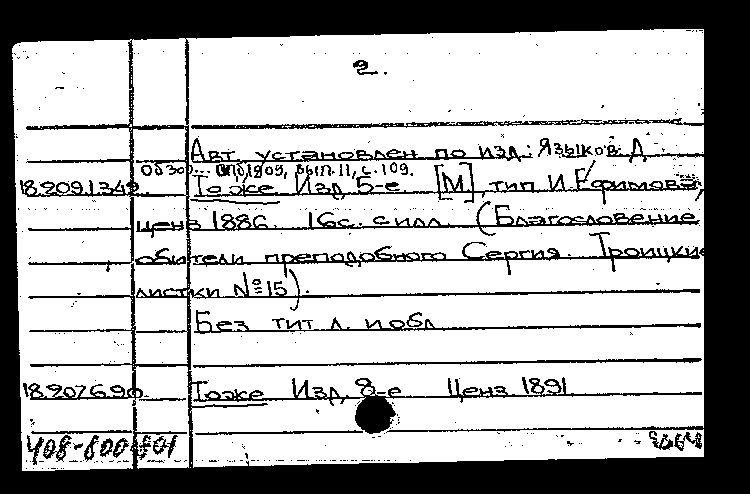 2.
Авт. установлен по изд.: Языков Д.
Обзор... СПб, 1909, вып. 11, с. 109.
18.209.1.349. То же Изд. 5-е [М], тип. И. Ефимова,
ценз 1886. 16с. с илл. (Благословение
обители преподобного Сергия. Троицкие
листки №15).
Без тит. л. и обл.
18.207.6.90. То же Изд. 8-е Ценз. 1891.
408-800